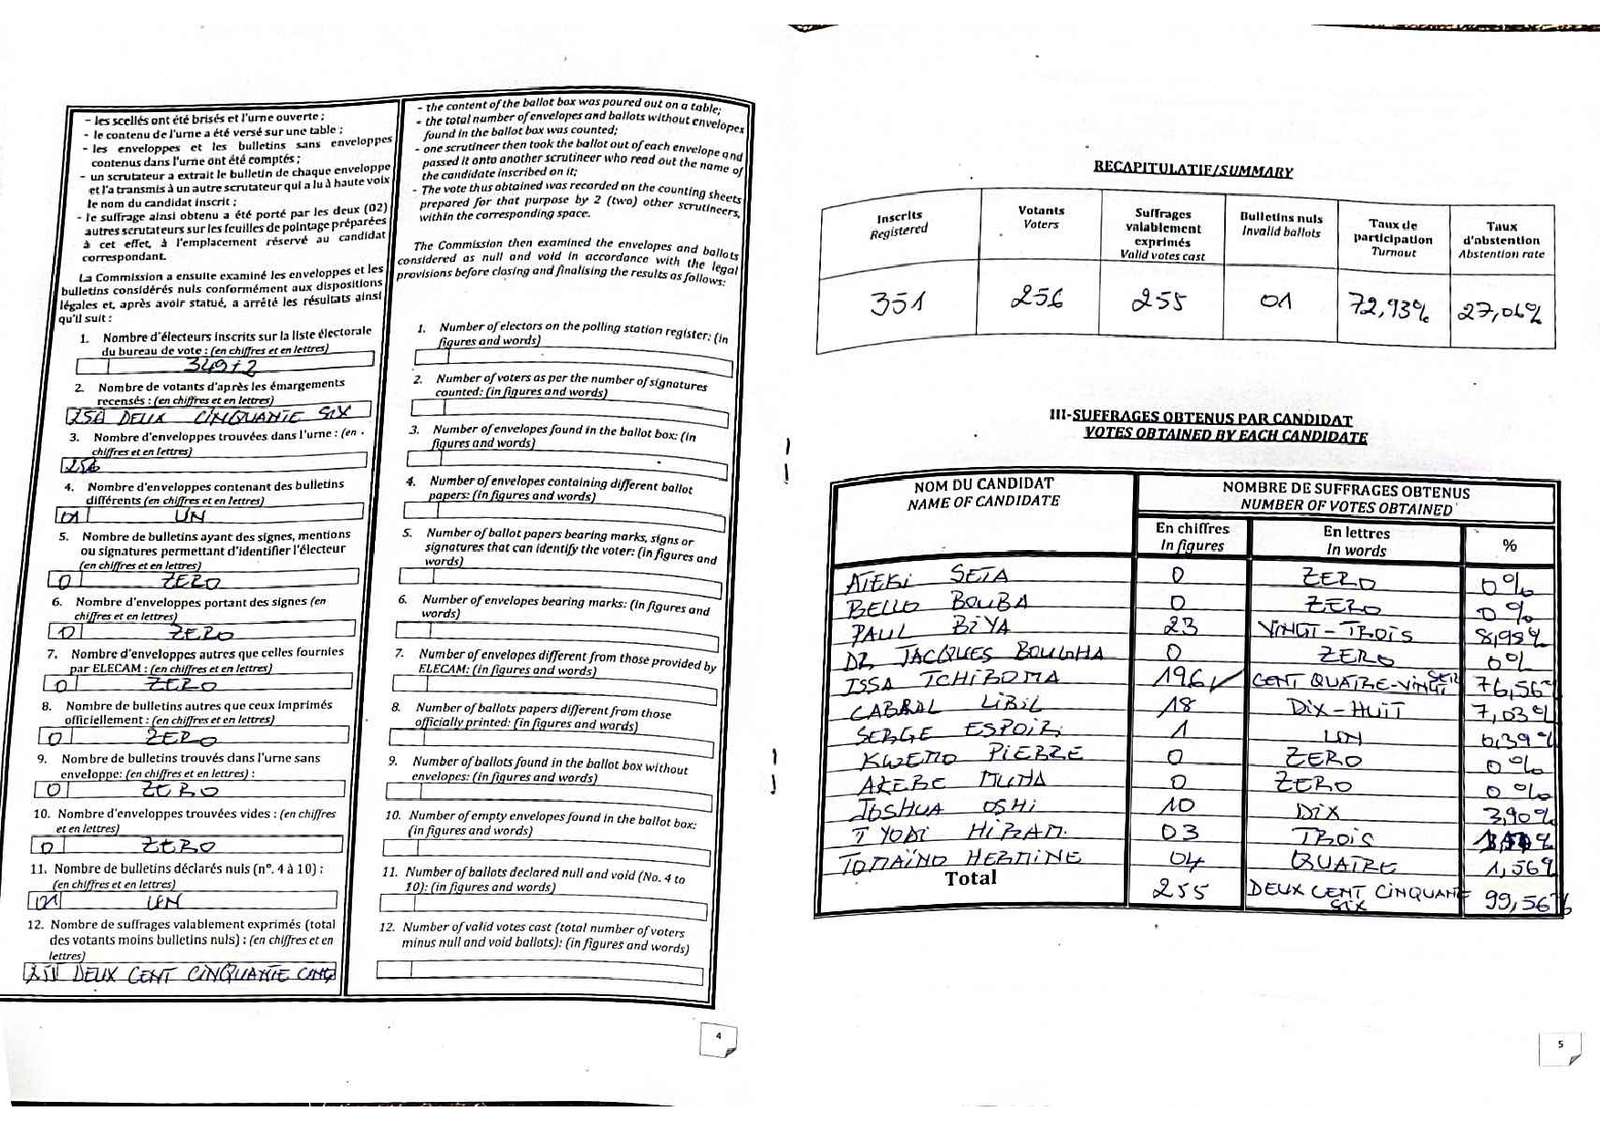 - les scellés ont été brisés et l'urne ouverte ;
- le contenu de l'urne a été versé sur une table ;
- les enveloppes et les bulletins sans enveloppes
contenus dans l'urne ont été comptés ;
- un scrutateur a extrait le bulletin de chaque enveloppe
et l'a transmis à un autre scrutateur qui a lu à haute voix
le nom du candidat inscrit ;
- le suffrage ainsi obtenu a été porté par les deux (02)
autres scrutateurs sur les feuilles de pointage préparées
à cet effet, à l'emplacement réservé au candidat
correspondant.
La Commission a ensuite examiné les enveloppes et les
bulletins considérés nuls conformément aux dispositions
légales et, après avoir statué, a arrêté les résultats ainsi
qu'il suit :
1. Nombre d'électeurs inscrits sur la liste électorale
du bureau de vote : (en chiffres et en lettres)
349+2
2. Nombre de votants d'après les émargements
recensés : (en chiffres et en lettres)
256 DEUX CINQUANTE SIX
3. Nombre d'enveloppes trouvées dans l'urne : (en
chiffres et en lettres)
256
4. Nombre d'enveloppes contenant des bulletins
différents (en chiffres et en lettres)
01 UN
5. Nombre de bulletins ayant des signes, mentions
ou signatures permettant d'identifier l'électeur
(en chiffres et en lettres)
0 ZERO
6. Nombre d'enveloppes portant des signes (en
chiffres et en lettres)
0 ZERO
7. Nombre d'enveloppes autres que celles fournies
par ELECAM : (en chiffres et en lettres)
0 ZERO
8. Nombre de bulletins autres que ceux imprimés
officiellement : (en chiffres et en lettres)
0 ZERO
9. Nombre de bulletins trouvés dans l'urne sans
enveloppe: (en chiffres et en lettres) :
0 ZERO
10. Nombre d'enveloppes trouvées vides : (en chiffres
et en lettres)
0 ZERO
11. Nombre de bulletins déclarés nuls (n°. 4 à 10) :
(en chiffres et en lettres)
01 UN
12. Nombre de suffrages valablement exprimés (total
des votants moins bulletins nuls) : (en chiffres et en
lettres)
DEUX CENT CINQUANTE CINQ
- the content of the ballot box was poured out on a table;
- the total number of envelopes and ballots without envelopes
found in the ballot box was counted;
- one scrutineer then took the ballot out of each envelope and
passed it onto another scrutineer who read out the name of
the candidate inscribed on it;
- The vote thus obtained was recorded on the counting sheets
prepared for that purpose by 2 (two) other scrutineers,
within the corresponding space.
The Commission then examined the envelopes and ballots
considered as null and void in accordance with the legal
provisions before closing and finalising the results as follows:
1. Number of electors on the polling station register: (in
figures and words)
2. Number of voters as per the number of signatures
counted: (in figures and words)
3. Number of envelopes found in the ballot box: (in
figures and words)
4. Number of envelopes containing different ballot
papers: (in figures and words)
5. Number of ballot papers bearing marks, signs or
signatures that can identify the voter: (in figures and
words)
6. Number of envelopes bearing marks: (in figures and
words)
7. Number of envelopes different from those provided by
ELECAM: (in figures and words)
8. Number of ballots papers different from those
officially printed: (in figures and words)
9. Number of ballots found in the ballot box without
envelopes: (in figures and words)
10. Number of empty envelopes found in the ballot box:
(in figures and words)
11. Number of ballots declared null and void (No. 4 to
10): (in figures and words)
12. Number of valid votes cast (total number of voters
minus null and void ballots): (in figures and words)
4
RECAPITULATIF/SUMMARY
Inscrits Registered
Votants Voters
Suffrages valablement exprimés Valid votes cast
Bulletins nuls Invalid ballots
Taux de participation Turnout
Taux d'abstention Abstention rate
351 256 255 01 72,93% 27,06%
III-SUFFRAGES OBTENUS PAR CANDIDAT
VOTES OBTAINED BY EACH CANDIDATE
NOM DU CANDIDAT
NAME OF CANDIDATE
NOMBRE DE SUFFRAGES OBTENUS
NUMBER OF VOTES OBTAINED
En chiffres In figures
En lettres In words
%
ATEKI SETA 0 ZERO 0%
BELLO BOUBA 0 ZERO 0%
PAUL BIYA 23 VINGT-TROIS 8,98%
DR JACQUES BOUGHA 0 ZERO 0%
ISSA TCHIROMA 196 CENT QUATRE-VINGT SEIZE 76,56%
CABRAL LIBIL 18 DIX-HUIT 7,03%
SERGE ESPOIR 1 UN 0,39%
KWEMO PIERRE 0 ZERO 0%
AKERE MUNA 0 ZERO 0%
JOSHUA OSHI 10 DIX 3,90%
TYODI HIRAM. 03 TROIS
TOMAÏNO HERMINE 04 QUATRE 1,56%
Total 255 DEUX CENT CINQUANTE SIX 99,56%
5